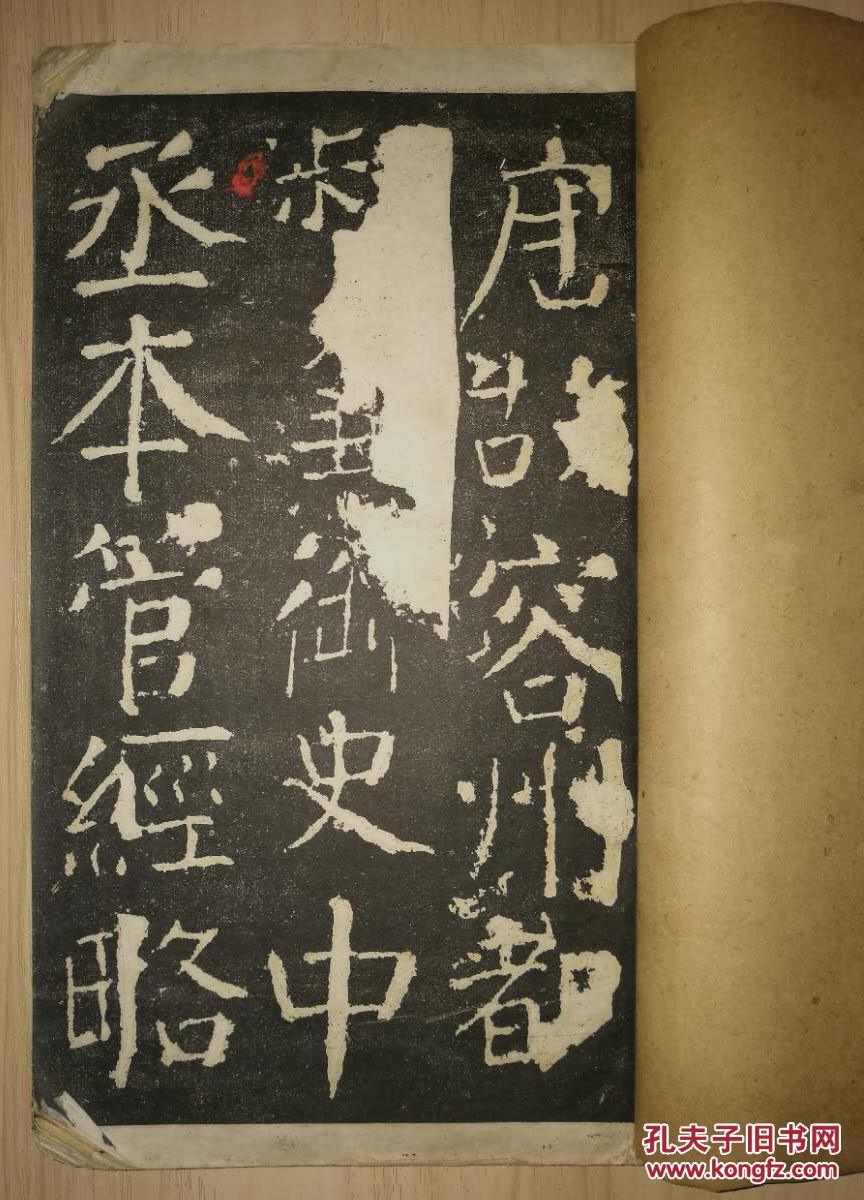 唐故容州都
御史中
丞本管經略
孔夫子旧书网
www.kongfz.com